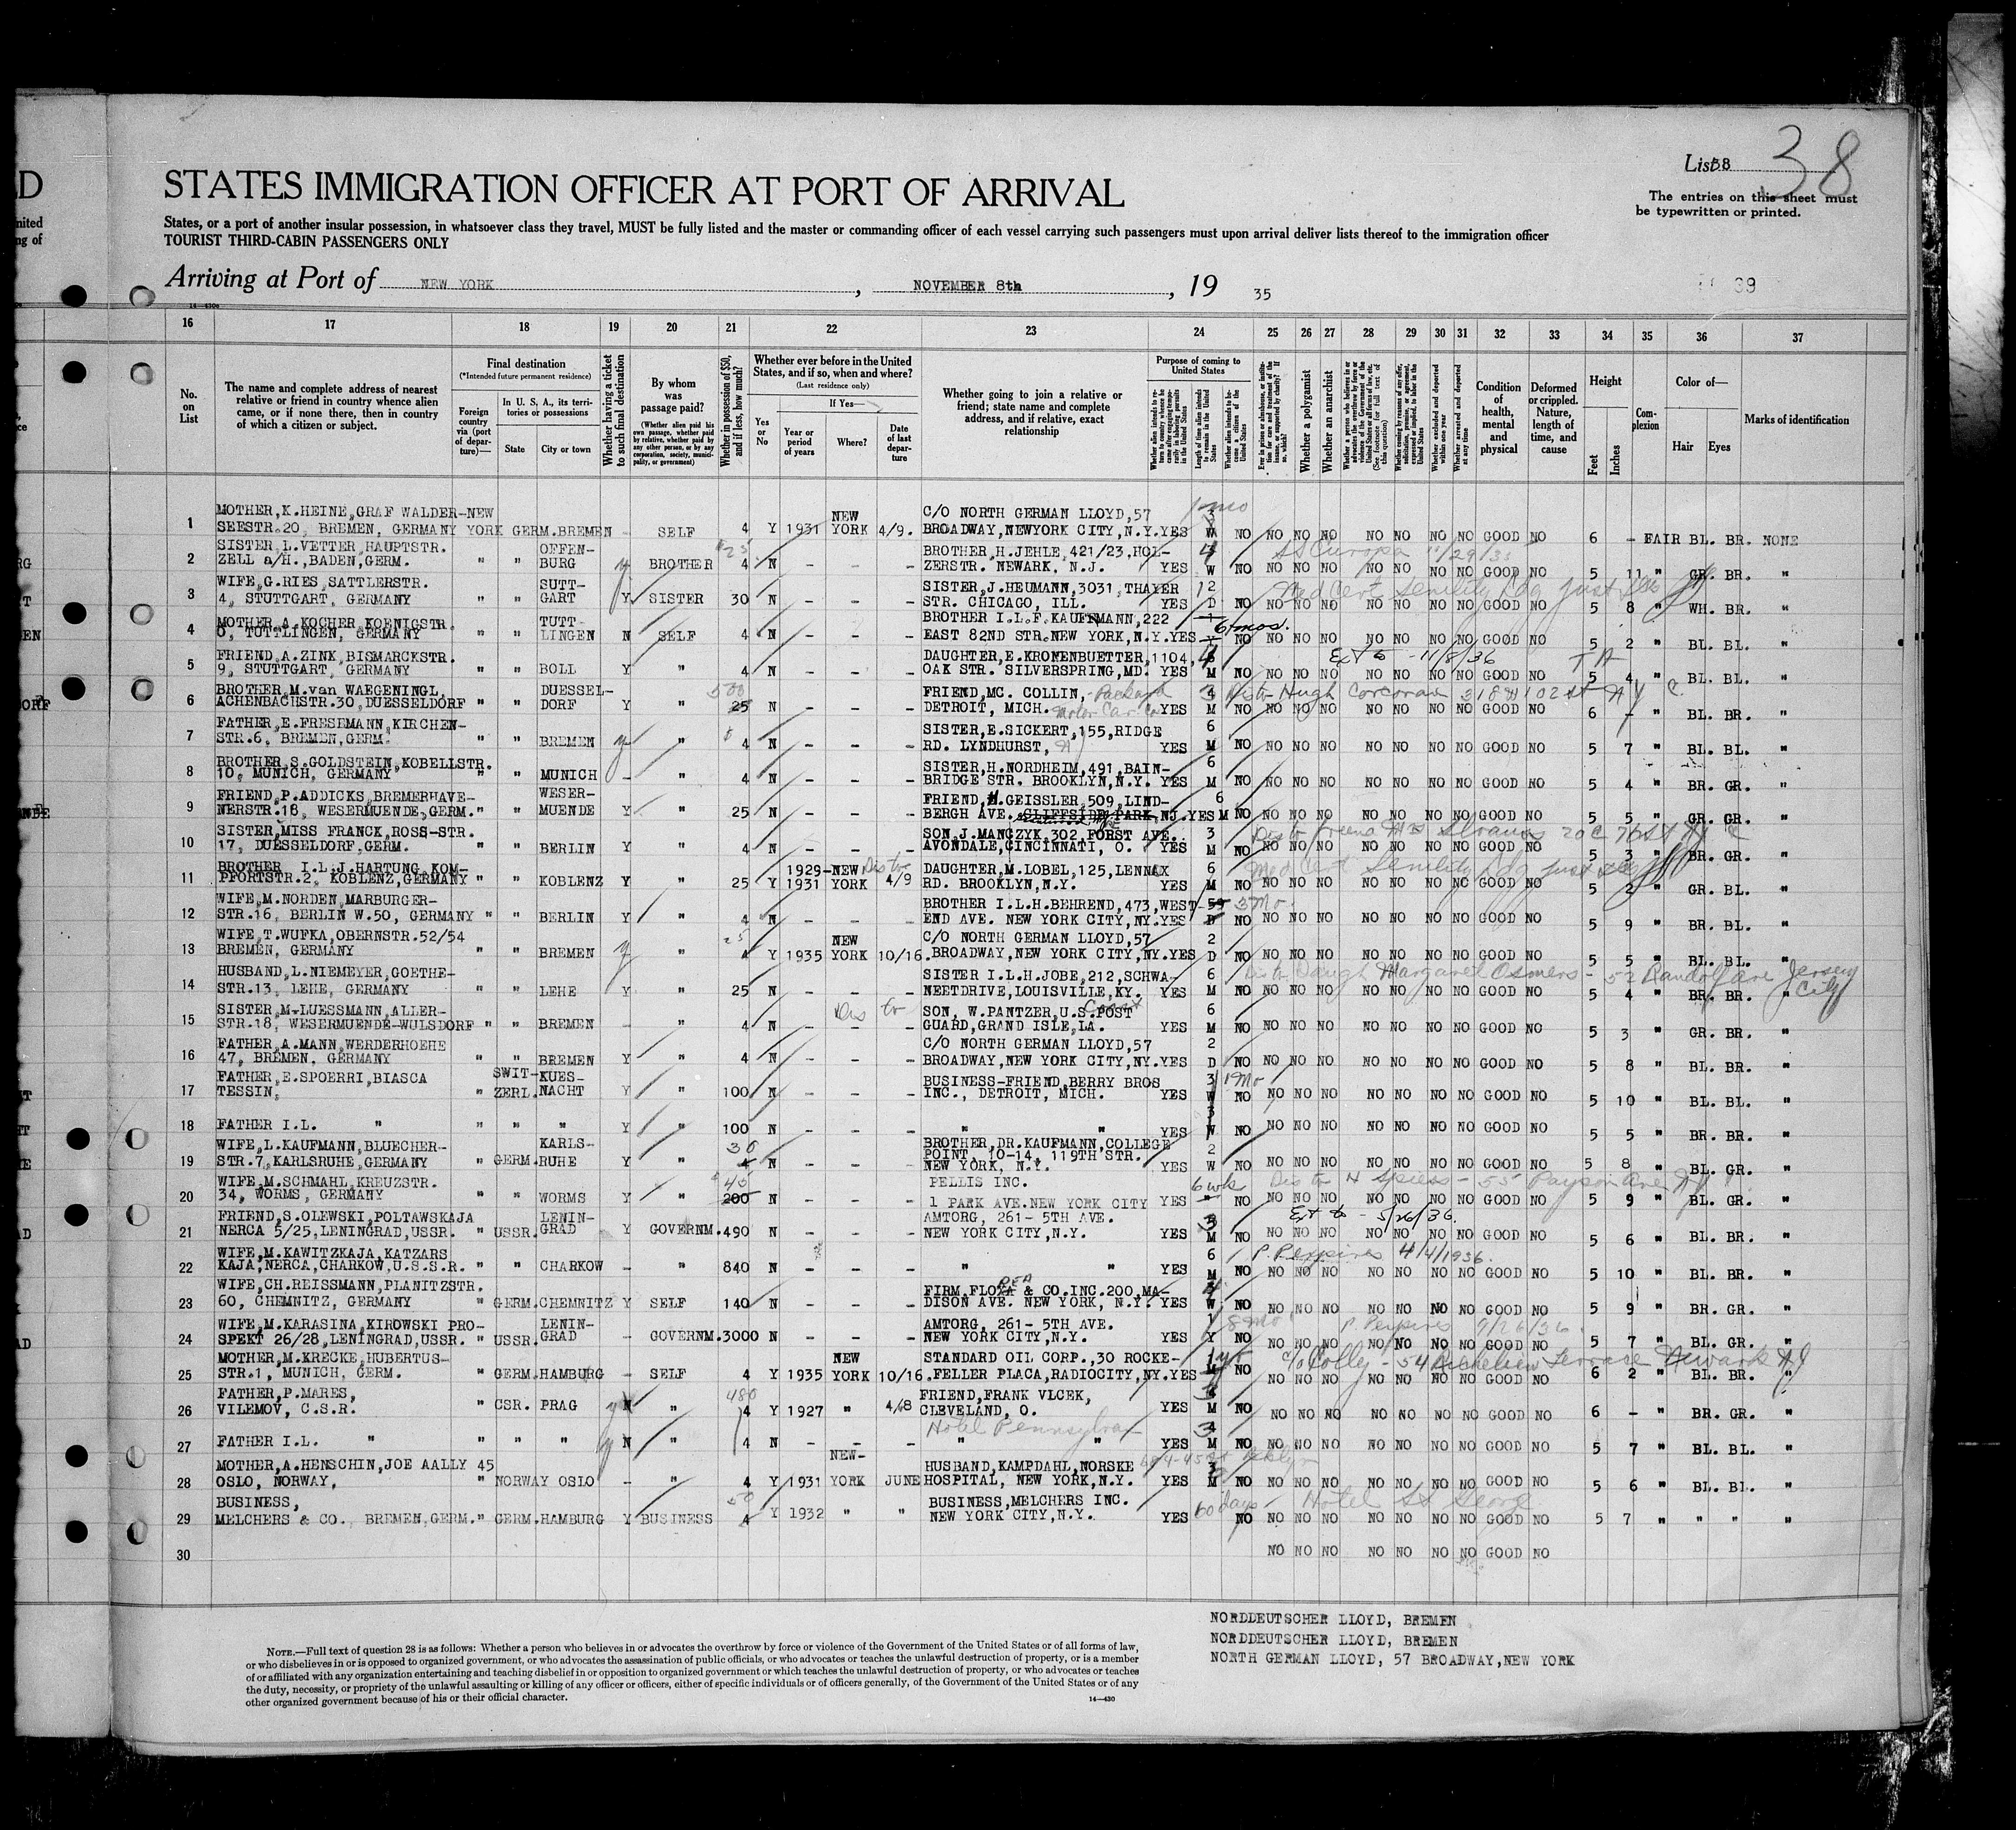 List 38
38
The entries on this sheet must
be typewritten or printed.
STATES IMMIGRATION OFFICER AT PORT OF ARRIVAL
States, or a port of another insular possession, in whatsoever class they travel, MUST be fully listed and the master or commanding officer of each vessel carrying such passengers must upon arrival deliver lists thereof to the immigration officer
TOURIST THIRD-CABIN PASSENGERS ONLY
Arriving at Port of NEW YORK , NOVEMBER 8th , 19 35
16 17 18 19 20 21 22 23 24 25 26 27 28 29 30 31 32 33 34 35 36 37
No. on List
The name and complete address of nearest relative or friend in country whence alien came, or if none there, then in country of which a citizen or subject.
Final destination
(*Intended future permanent residence)
Foreign country via (port of departure)—
In U. S. A., its territories or possessions
State
City or town
Whether having a ticket to such final destination
By whom was passage paid?
(Whether alien paid his own passage, whether paid by relative, whether paid by any other person, or by any corporation, society, municipality, or government)
Whether in possession of $50, and if less, how much?
Whether ever before in the United States, and if so, when and where?
(Last residence only)
Yes or No
If Yes—
Year or period of years
Where?
Date of last departure
Whether going to join a relative or friend; state name and complete address, and if relative, exact relationship
Purpose of coming to United States
Length of time alien intends to remain in the United States
Whether alien intends to become a citizen of the United States
Whether a polygamist
Whether an anarchist
Whether excluded and deported within one year
Whether arrested and deported at any time
Condition of health, mental and physical
Deformed or crippled. Nature, length of time, and cause
Height
Feet
Inches
Complexion
Color of—
Hair Eyes
Marks of identification
1 MOTHER,K.HEINE,GRAF WALDER-NEW
SEESTR.20, BREMEN, GERMANY YORK GERM.BREMEN - SELF 4 Y 1931 NEW YORK 4/9. C/O NORTH GERMAN LLOYD,57 BROADWAY,NEWYORK CITY,N.Y.YES 3 W NO NO NO NO NO NO NO NO GOOD NO 6 - FAIR BL. BR. NONE
2 SISTER,L.VETTER,HAUPTSTR.
ZELL a/H.,BADEN,GERM. " " OFFENBURG y BROTHER 4 N - - - BROTHER,H.JEHLE,421/23,HOL-ZERSTR. NEWARK, N.J. YES W NO NO NO NO NO NO NO NO GOOD NO 5 11 " GR. BR. "
SS Europa 11/29/35
3 WIFE,G.RIES,SATTLERSTR.
4, STUTTGART, GERMANY " " SUTT-GART Y SISTER 30 N - - - SISTER,J.HEUMANN,3031,THAYER STR. CHICAGO, ILL. YES D NO NO NO NO NO NO NO NO GOOD NO 5 8 " WH. BR. "
Med Cert Senility
4 MOTHER,A.KOCHER,KOENIGSTR.
0, TUTTLINGEN, GERMANY " " TUTT-LINGEN N SELF 4 N - - - BROTHER I.L.F.KAUFMANN,222 EAST 82ND STR.NEW YORK,N.Y.YES 6 mos. NO NO NO NO NO NO NO NO GOOD NO 5 2 " BL. BL. "
5 FRIEND,A.ZINK,BISMARCKSTR.
9, STUTTGART, GERMANY " " BOLL Y " 4 N - - - DAUGHTER,E.KRONENBUETTER,1104, OAK STR. SILVERSPRING,MD. YES M NO NO NO NO NO NO NO NO GOOD NO 5 4 " BL. BL. "
Ext to - 11/8/36
6 BROTHER,M.van WAEGENINGL,
ACHENBACHSTR.30,DUESSELDORF " " DUESSEL-DORF Y " 25 N - - - FRIEND,MC. COLLIN, Packard DETROIT, MICH. Motor Car Co YES 4 M NO NO NO NO NO NO NO NO GOOD NO 6 - " BL. BR. "
7 FATHER,E.FRESEMANN,KIRCHEN-
STR.6, BREMEN,GERM. " " BREMEN y " 4 N - - - SISTER,E.SICKERT,155,RIDGE RD. LYNDHURST, YES 6 M NO NO NO NO NO NO NO NO GOOD NO 5 7 " BL. BL. "
8 BROTHER,S.GOLDSTEIN,KOBELLSTR.
10, MUNICH, GERMANY " " MUNICH - " 4 N - - - SISTER,H.NORDHEIM,491,BAIN-BRIDGE STR. BROOKLYN,N.Y. YES 6 M NO NO NO NO NO NO NO NO GOOD NO 5 4 " BR. GR. "
9 FRIEND,P.ADDICKS,BREMERHAVE-
NERSTR.18, WESERMUENDE,GERM. " " WESER-MUENDE Y " 25 N - - - FRIEND,H.GEISSLER,509,LIND-BERGH AVE. CLIFFSIDE PARK,NJ.YES 6 M NO NO NO NO NO NO NO NO GOOD NO 5 5 " GR. GR. "
10 SISTER,MISS FRANCK,ROSS-STR.
17, DUESSELDORF,GERM. " " BERLIN Y " 4 N - - - SON,J.MANCZYK,302,FORST AVE. AVONDALE,CINCINNATI, O. YES 3 M NO NO NO NO NO NO NO NO GOOD NO 5 3 " BR. GR. "
11 BROTHER I.L.J.HARTUNG,KOM-
PFORTSTR.2, KOBLENZ,GERMANY " " KOBLENZ Y " 25 Y 1929-1931 NEW YORK 4/9 DAUGHTER,M.LOBEL,125,LENNAX RD. BROOKLYN,N.Y. YES 6 M NO NO NO NO NO NO NO NO GOOD NO 5 2 " GR. BL. "
Med Cert Senility
12 WIFE,M.NORDEN,MARBURGER-
STR.16, BERLIN W.50, GERMANY " " BERLIN Y " 4 N - - - BROTHER I.L.H.BEHREND,473,WEST-END AVE. NEW YORK CITY,NY.YES 3 Mo. NO NO NO NO NO NO NO NO GOOD NO 5 9 " BR. BL. "
13 WIFE,T.WUFKA,OBERNSTR.52/54
BREMEN, GERMANY " " BREMEN y " 4 Y 1935 NEW YORK 10/16. C/O NORTH GERMAN LLOYD,57 BROADWAY,NEW YORK CITY,NY.YES 2 D NO NO NO NO NO NO NO NO GOOD NO 5 5 " BL. BL. "
14 HUSBAND,L.NIEMEYER,GOETHE-
STR.13, LEHE, GERMANY " " LEHE Y " 25 N - - - SISTER I.L.H.JOBE,212,SCHWA-NEETDRIVE,LOUISVILLE,KY. YES 6 M NO NO NO NO NO NO NO NO GOOD NO 5 4 " BR. BR. "
Margaret Osmers - 52 Randolf ave Jersey City
15 SISTER,M.LUESSMANN,ALLER-
STR.18, WESERMUENDE-WULSDORF " " BREMEN - " 4 N - - - SON, W.PANTZER,U.S.POST Coast GUARD,GRAND ISLE,LA. YES 6 M NO NO NO NO NO NO NO NO GOOD NO 5 3 " GR. BR. "
16 FATHER,A.MANN,WERDERHOEHE
47, BREMEN, GERMANY " " BREMEN Y " 4 N - - - C/O NORTH GERMAN LLOYD,57 BROADWAY,NEW YORK CITY,NY.YES 2 D NO NO NO NO NO NO NO NO GOOD NO 5 8 " BL. BR. "
17 FATHER,E.SPOERRI,BIASCA
TESSIN, " SWIT-ZERL. KUES-NACHT Y " 100 N - - - BUSINESS-FRIEND,BERRY BROS INC., DETROIT, MICH. YES 3 W 1 Mo NO NO NO NO NO NO NO NO GOOD NO 5 10 " BL. BL. "
18 FATHER I.L. " " " " Y " 100 N - - - " " YES 3 W NO NO NO NO NO NO NO NO GOOD NO 5 5 " BR. BR. "
19 WIFE,L.KAUFMANN,BLUECHER-
STR.7,KARLSRUHE,GERMANY " GERM. KARLS-RUHE Y " 30 N - - - BROTHER,DR.KAUFMANN,COLLEGE POINT, 10-14, 119TH STR. NEW YORK, N.Y. YES 2 W NO NO NO NO NO NO NO NO GOOD NO 5 8 " BL. GR. "
20 WIFE,M.SCHMAHL,KREUZSTR.
34, WORMS, GERMANY " " WORMS Y " 200 N - - - PELLIS INC. 1 PARK AVE.NEW YORK CITY YES 6 wks NO NO NO NO NO NO NO NO GOOD NO 5 9 " BL. GR. "
21 FRIEND,S.OLEWSKI,POLTAWSKAJA
NERCA 5/25,LENINGRAD,USSR. " USSR. LENIN-GRAD Y GOVERNM. 490 N - - - AMTORG, 261- 5TH AVE. NEW YORK CITY,N.Y. YES 3 M NO NO NO NO NO NO NO NO GOOD NO 5 6 " BL. BR. "
Ext to - 5/26/36.
22 WIFE,M.KAWITZKAJA,KATZARS
KAJA,NERCA,CHARKOW,U.S.S.R. " " CHARKOW - " 840 N - - - " " YES 6 M NO NO NO NO NO NO NO NO GOOD NO 5 10 " BL. BR. "
P.P. expires 4/4/1936.
23 WIFE,CH.REISSMANN,PLANITZSTR.
60, CHEMNITZ, GERMANY " GERM. CHEMNITZ Y SELF 140 N - - - FIRM,FLOREA & CO.INC.200,MA-DISON AVE. NEW YORK, N.Y. YES W NO NO NO NO NO NO NO NO GOOD NO 5 9 " BR. GR. "
24 WIFE,M.KARASINA,KIROWSKI PRO-
SPEKT 26/28,LENINGRAD,USSR. " USSR. LENIN-GRAD - GOVERNM. 3000 N - - - AMTORG, 261- 5TH AVE. NEW YORK CITY,N.Y. YES 1 Y NO NO NO NO NO NO NO NO GOOD NO 5 7 " BL. GR. "
P.P. expires 9/26/36.
25 MOTHER,M.KRECKE,HUBERTUS-
STR.1, MUNICH, GERM. " GERM. HAMBURG - SELF 4 Y 1935 NEW YORK 10/16 STANDARD OIL CORP.,30 ROCKE-.FELLER PLACA,RADIOCITY,NY.YES M NO NO NO NO NO NO NO NO GOOD NO 6 2 " BL. BR. "
c/o Colley - 54 Richelieu Terrace Newark NJ
26 FATHER,P.MARES,
VILEMOV, C.S.R. " CSR. PRAG N " 4 Y 1927 " 4/8 FRIEND,FRANK VLCEK, CLEVELAND, O. YES M NO NO NO NO NO NO NO NO GOOD NO 6 - " BR. GR. "
Hotel Pennsylvan
27 FATHER I.L. " " " " N " 4 N - - - " " YES M NO NO NO NO NO NO NO NO GOOD NO 5 7 " BL. BL. "
28 MOTHER,A.HENSCHIN,JOE AALLY 45
OSLO, NORWAY, " NORWAY OSLO - " 4 Y 1931 NEW-YORK JUNE HUSBAND,KAMPDAHL,NORSKE HOSPITAL, NEW YORK,N.Y. YES 3 M NO NO NO NO NO NO NO NO GOOD NO 5 6 " BL. BL. "
29 BUSINESS,
MELCHERS & CO. BREMEN,GERM. " GERM. HAMBURG Y BUSINESS 4 Y 1932 " " BUSINESS,MELCHERS INC. NEW YORK CITY,N.Y. YES 60 days NO NO NO NO NO NO NO NO GOOD NO 5 7 " " " "
Hotel St George
30 NO NO NO NO NO NO NO GOOD NO
NORDDEUTSCHER LLOYD, BREMEN
NORDDEUTSCHER LLOYD, BREMEN
NORTH GERMAN LLOYD, 57 BROADWAY,NEW YORK
NOTE.—Full text of question 28 is as follows: Whether a person who believes in or advocates the overthrow by force or violence of the Government of the United States or of all forms of law,
or who disbelieves in or is opposed to organized government, or who advocates the assassination of public officials, or who advocates or teaches the unlawful destruction of property, or is a member
of or affiliated with any organization entertaining and teaching disbelief in or opposition to organized government or which teaches the unlawful destruction of property, or who advocates or teaches
the duty, necessity, or propriety of the unlawful assaulting or killing of any officer or officers, either of specific individuals or of officers generally, of the Government of the United States or of any
other organized government because of his or their official character.
14—430